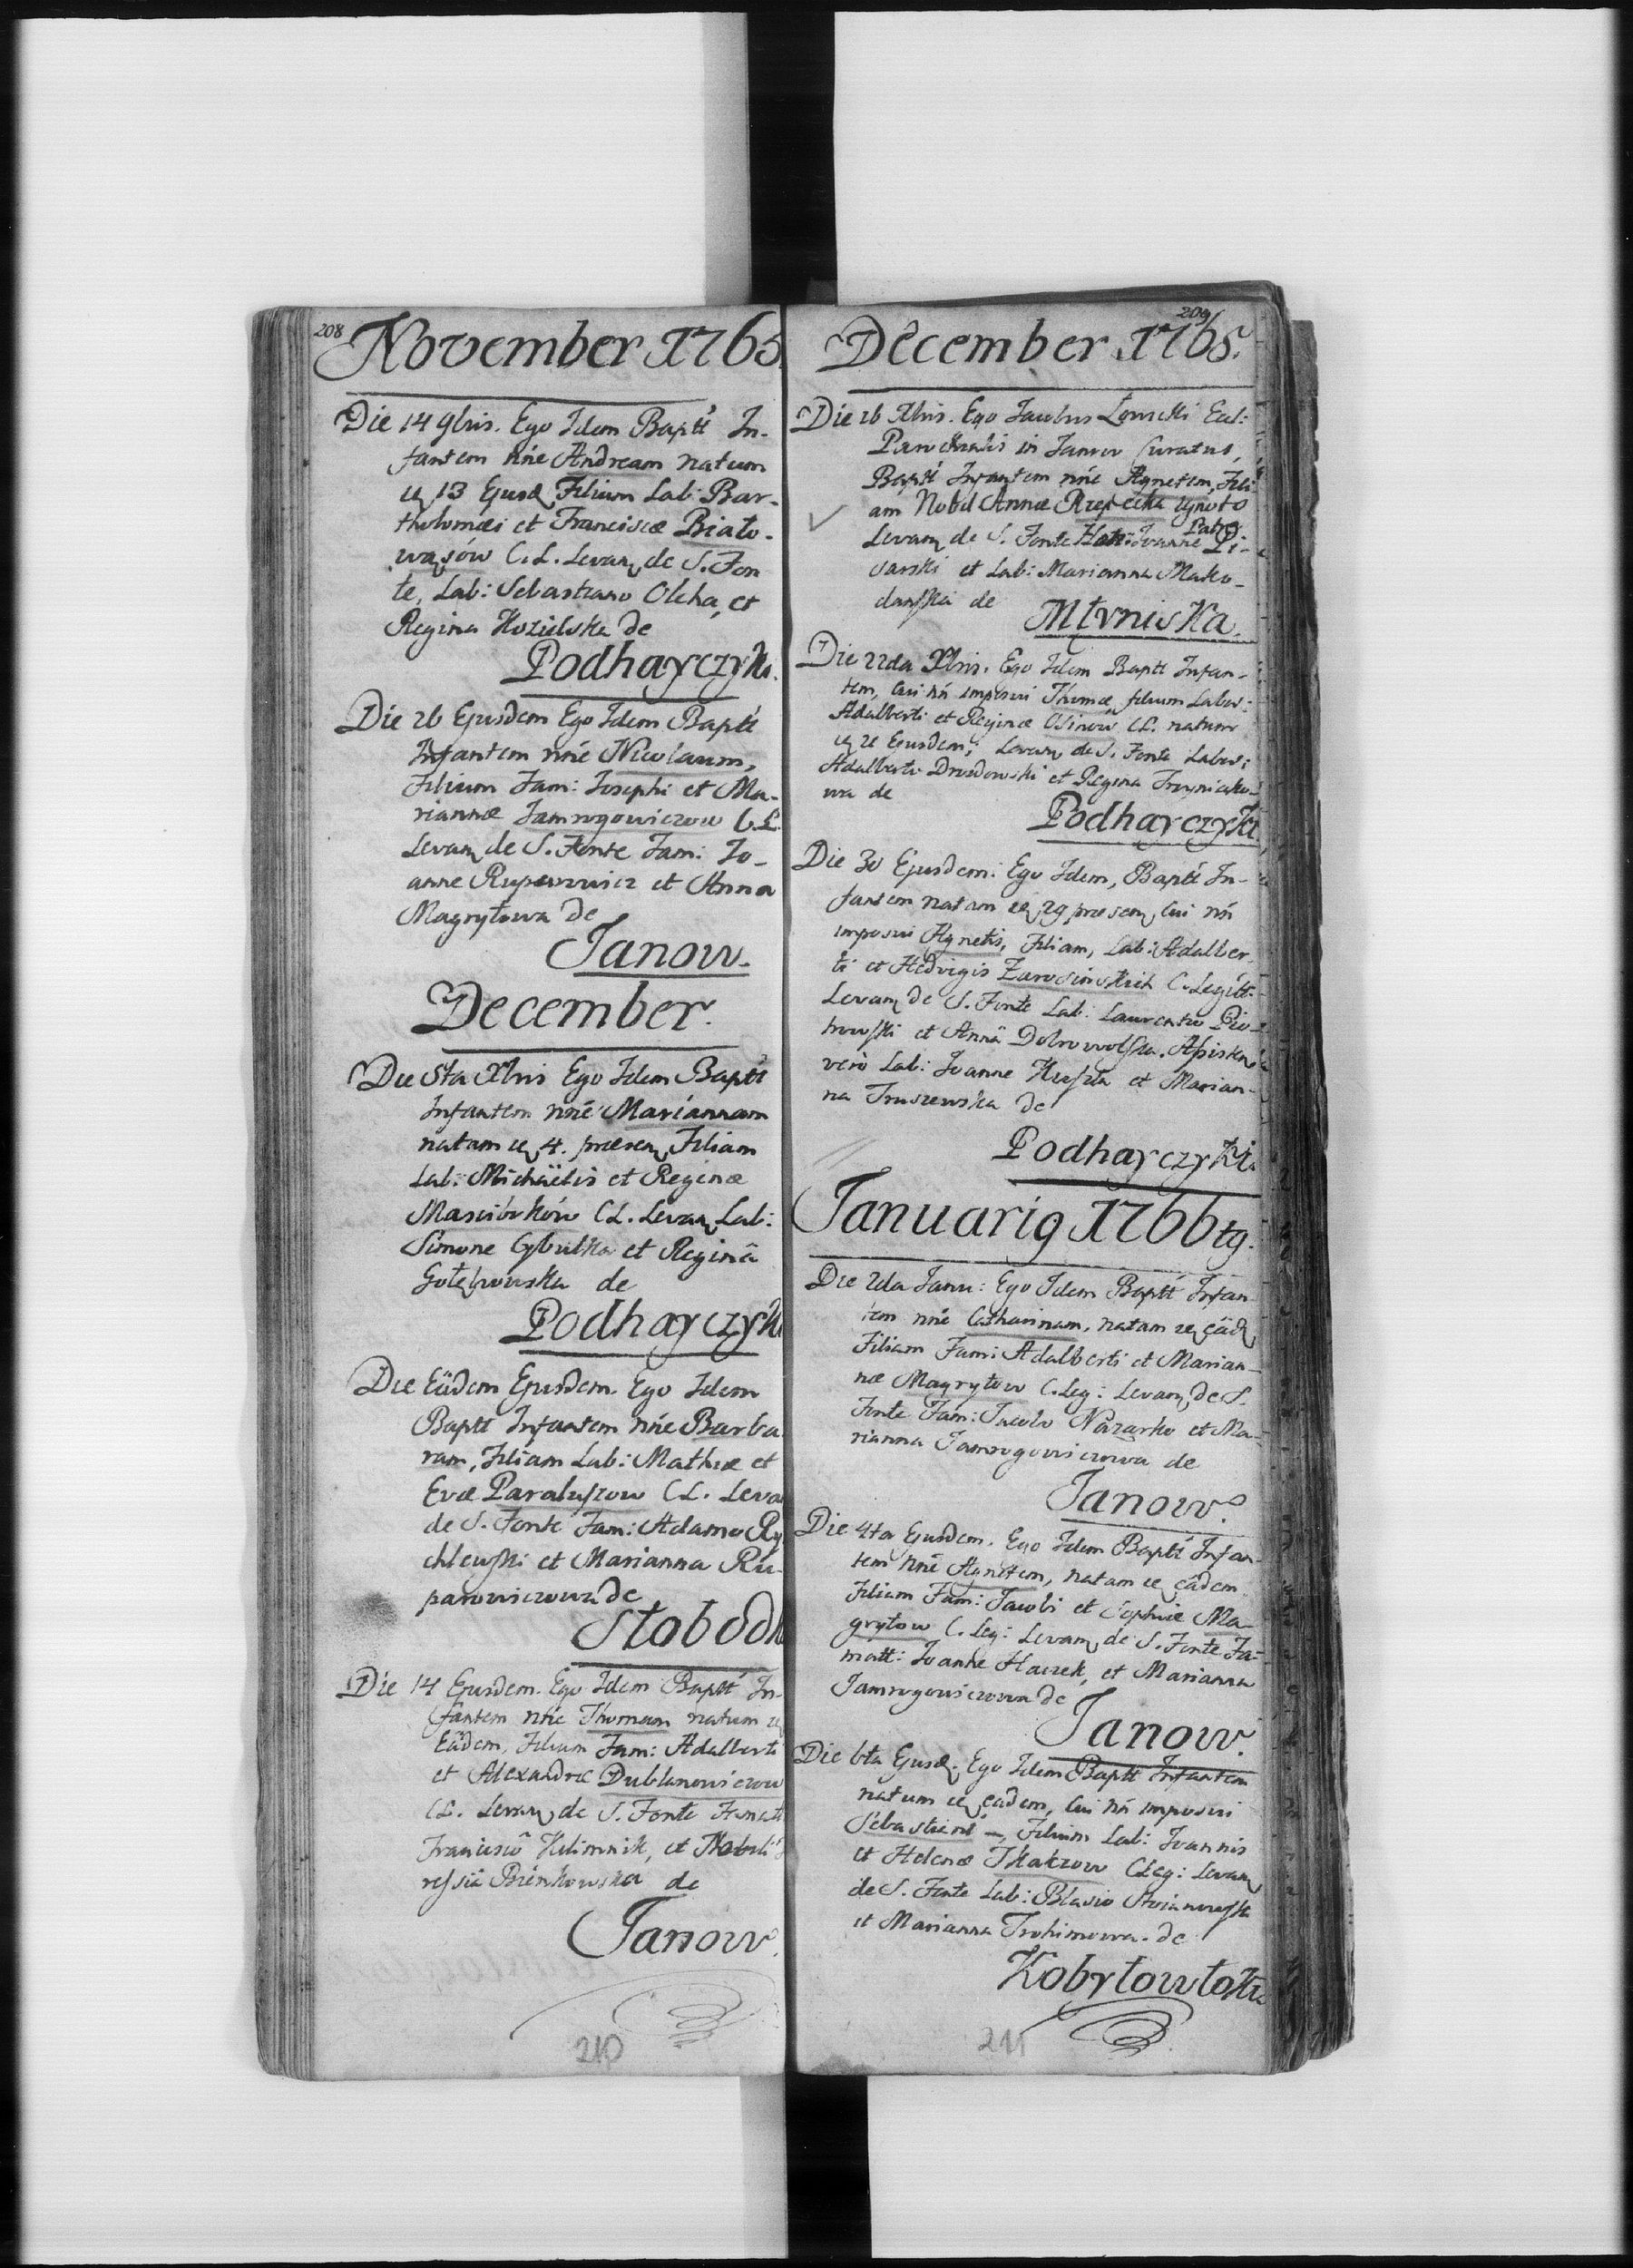 208
November 1765
Die 14 9bris. Ego Idem Baptt In-
fantem nne Andream natum
13 Ejusd Filium Lab: Bar-
tholomæi et Franciscæ Biało-
wąsów C.L. Levan de S. Fon
te, Lab: Sebastiano Olcha, et
Regina Kozielska de
Podhayczyki.
Die 26 Ejusdem Ego Idem Baptt
Infantem nne Nicolaum,
Filium Fam: Josephi et Ma-
riannæ Jamrogowiczow C.L.
Levan de S. Fonte Fam: Jo-
anne Ruparowicz et Anna
Magrytowa de
Janow.
December.
Die 5ta Xbris Ego Idem Baptt
Infantem nne Mariannam
natam 4. præsen Filiam
Lab: Michäelis et Reginæ
CL. Levan Lab:
Simone Cybulka et Reginâ
de
Podhayczyki
Die Eâdem Ejusdem. Ego Idem
Baptt Infantem nne Barba
ram, Filiam Lab: Mathiæ et
Evæ Paraluszow CL. Leva
de S. Fonte Fam: Adamo Ry
chlewski et Marianna Ru-
parowiczowa de
Słobodk
Die 14 Ejusdem. Ego Idem Baptt In-
fantem nne Thomam natum
Eâdem, Filium Fam: Adalberti
et Alexandræ Dublanowiczow
CL. Levan de S. Fonte Famat
Franciscô Klimnik, et Nobili
Bienkowska de
Janow.
210
209
December 1765.
Die 16 Xbris. Ego Jacobus Eccl:
Parochialis in Janow Curatus,
Baptt Infantem nne Agnetem, Fili
am Nobil Annæ Rzepecka ignoto
Patre
Levan de S. Fonte Joanne Pi-
sarski et Lab: Marianna Mako-
danska de
Młyniska.
Die 22da Xbris. Ego Idem Baptt Infan-
tem, cui nn imposui Thomæ, filium Labor:
Adalberti et Reginæ Osinow CL. natum
21 Ejusdem, Levan de S. Fonte Labor:
Adalberto Drosdowski et Regina
wa de
Podhayczyki
Die 30 Ejusdem: Ego Idem, Baptt In-
fantem natam 29 præsen, cui nn
imposui Agnetis, Filiam, Lab: Adalber-
ti et Hedvigis C. Legitt.
Levan de S. Fonte Lab: Laurentio Pio-
trowski et Annâ Dobrowolska. Assisten
verò Lab: Joanne et Marian-
na Truszewska de
Podhayczyki
Januarig 1766tg.
Die 2da Janu: Ego Idem Baptt Infan
tem nne Catharinam, natam eâd
Filiam Fam: Adalberti et Marian-
næ Magrytow C. Leg: Levan de S.
Fonte Fam: Jacobo Nazarko et Ma-
rianna Jamrogowiczowa de
Janow.
Die 4ta Ejusdem. Ego Idem Baptt Infan-
tem nne Agnetem, natam eâdem
Filiam Fam: Jacobi et Sophiæ Ma-
grytow C. Leg: Levan de S. Fonte Fa-
matt: Joanne Haczek, et Marianna
Jamrogowiczowa de
Janow.
Die 6ta Ejusd. Ego Idem Baptt Infantem
natum eadem, cui nn imposui
Sebastiani, Filium Lab: Joannis
et Helenæ Tkaczow CLeg: Levan
de S. Fonte Lab: Blasio
et Marianna Trohimowa de
Kobyłowłoki
211